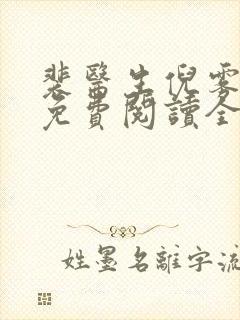 裴醫生倪雾
免費閱讀全
姓墨名離字流